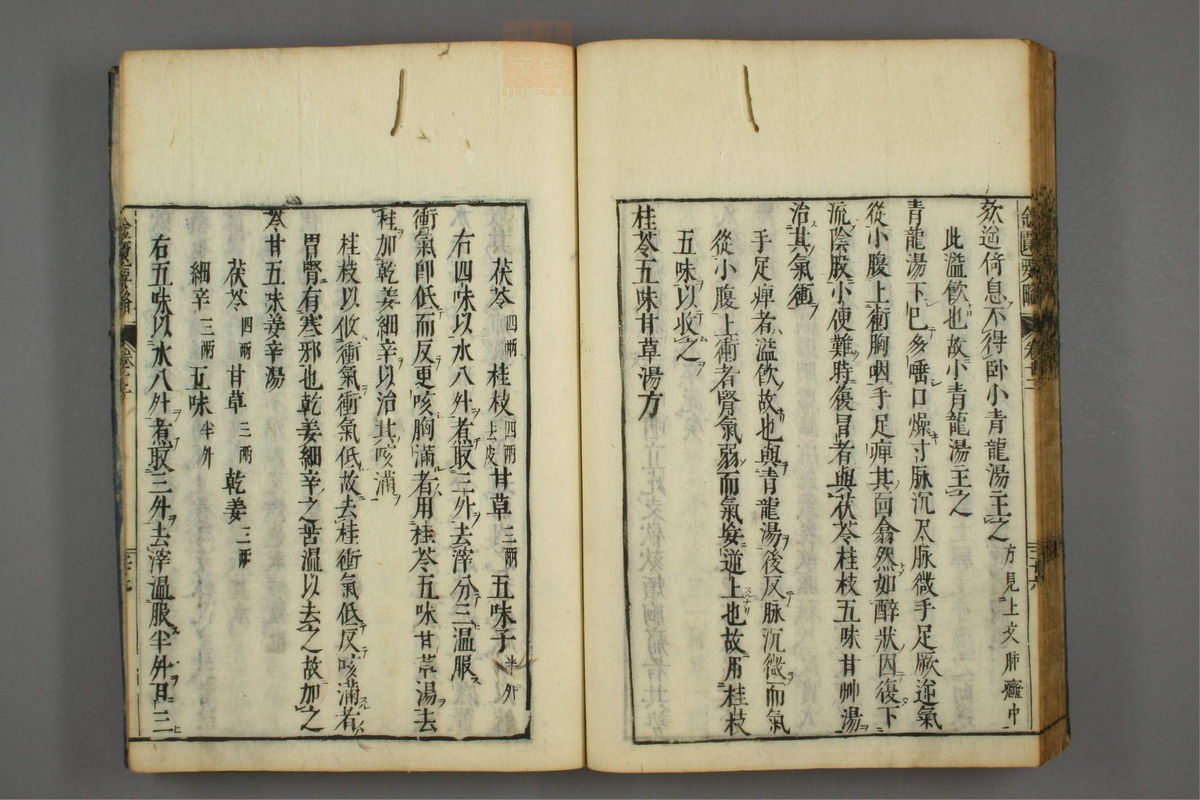 欬逆倚息不得卧小青龍湯主之方見上文肺癰中
此溢飮也故小青龍湯主之
青龍湯下已多唾口燥寸脉沉尺脉微手足厥逆氣
從小腹上衝胸咽手足痺其面翕然如醉狀因復下
流陰股小便難時復冒者與茯苓桂枝五味甘艸湯
治其氣衝
手足痺者溢飮故也與青龍湯後反脉沉微而氣
從小腹上衝者腎氣弱而氣妄逆上也故用桂枝
五味以收之
桂苓五味甘草湯方
茯苓四兩 桂枝四兩去皮 甘草三兩 五味子半升
右四味以水八升煮取三升去滓分三温服
衝氣卽低而反更咳胸滿者用桂苓五味甘草湯去
桂加乾姜細辛以治其咳滿
桂枝以收衝氣衝氣低故去桂衝氣低反咳滿者
胃腎有寒邪也乾姜細辛之苦温以去之故加之
苓甘五味姜辛湯
茯苓四兩 甘草三兩 乾姜三兩
細辛三兩 五味半升
右五味以水八升煮取三升去滓温服半升日三
金匱要略
金匱要略